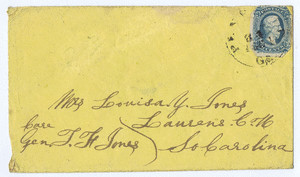 Mrs Louisa Y. Jones
Care Laurens C. H
Gen. T. F. Jones So Carolina